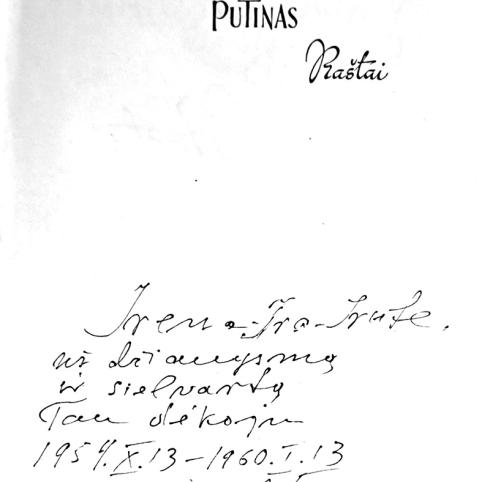 PUTINAS
Raštai
Irena-Ira-Irute.
už džiaugsmą
ir sielvartą
Tau dėkoju
1959.X.13-1960.I.13